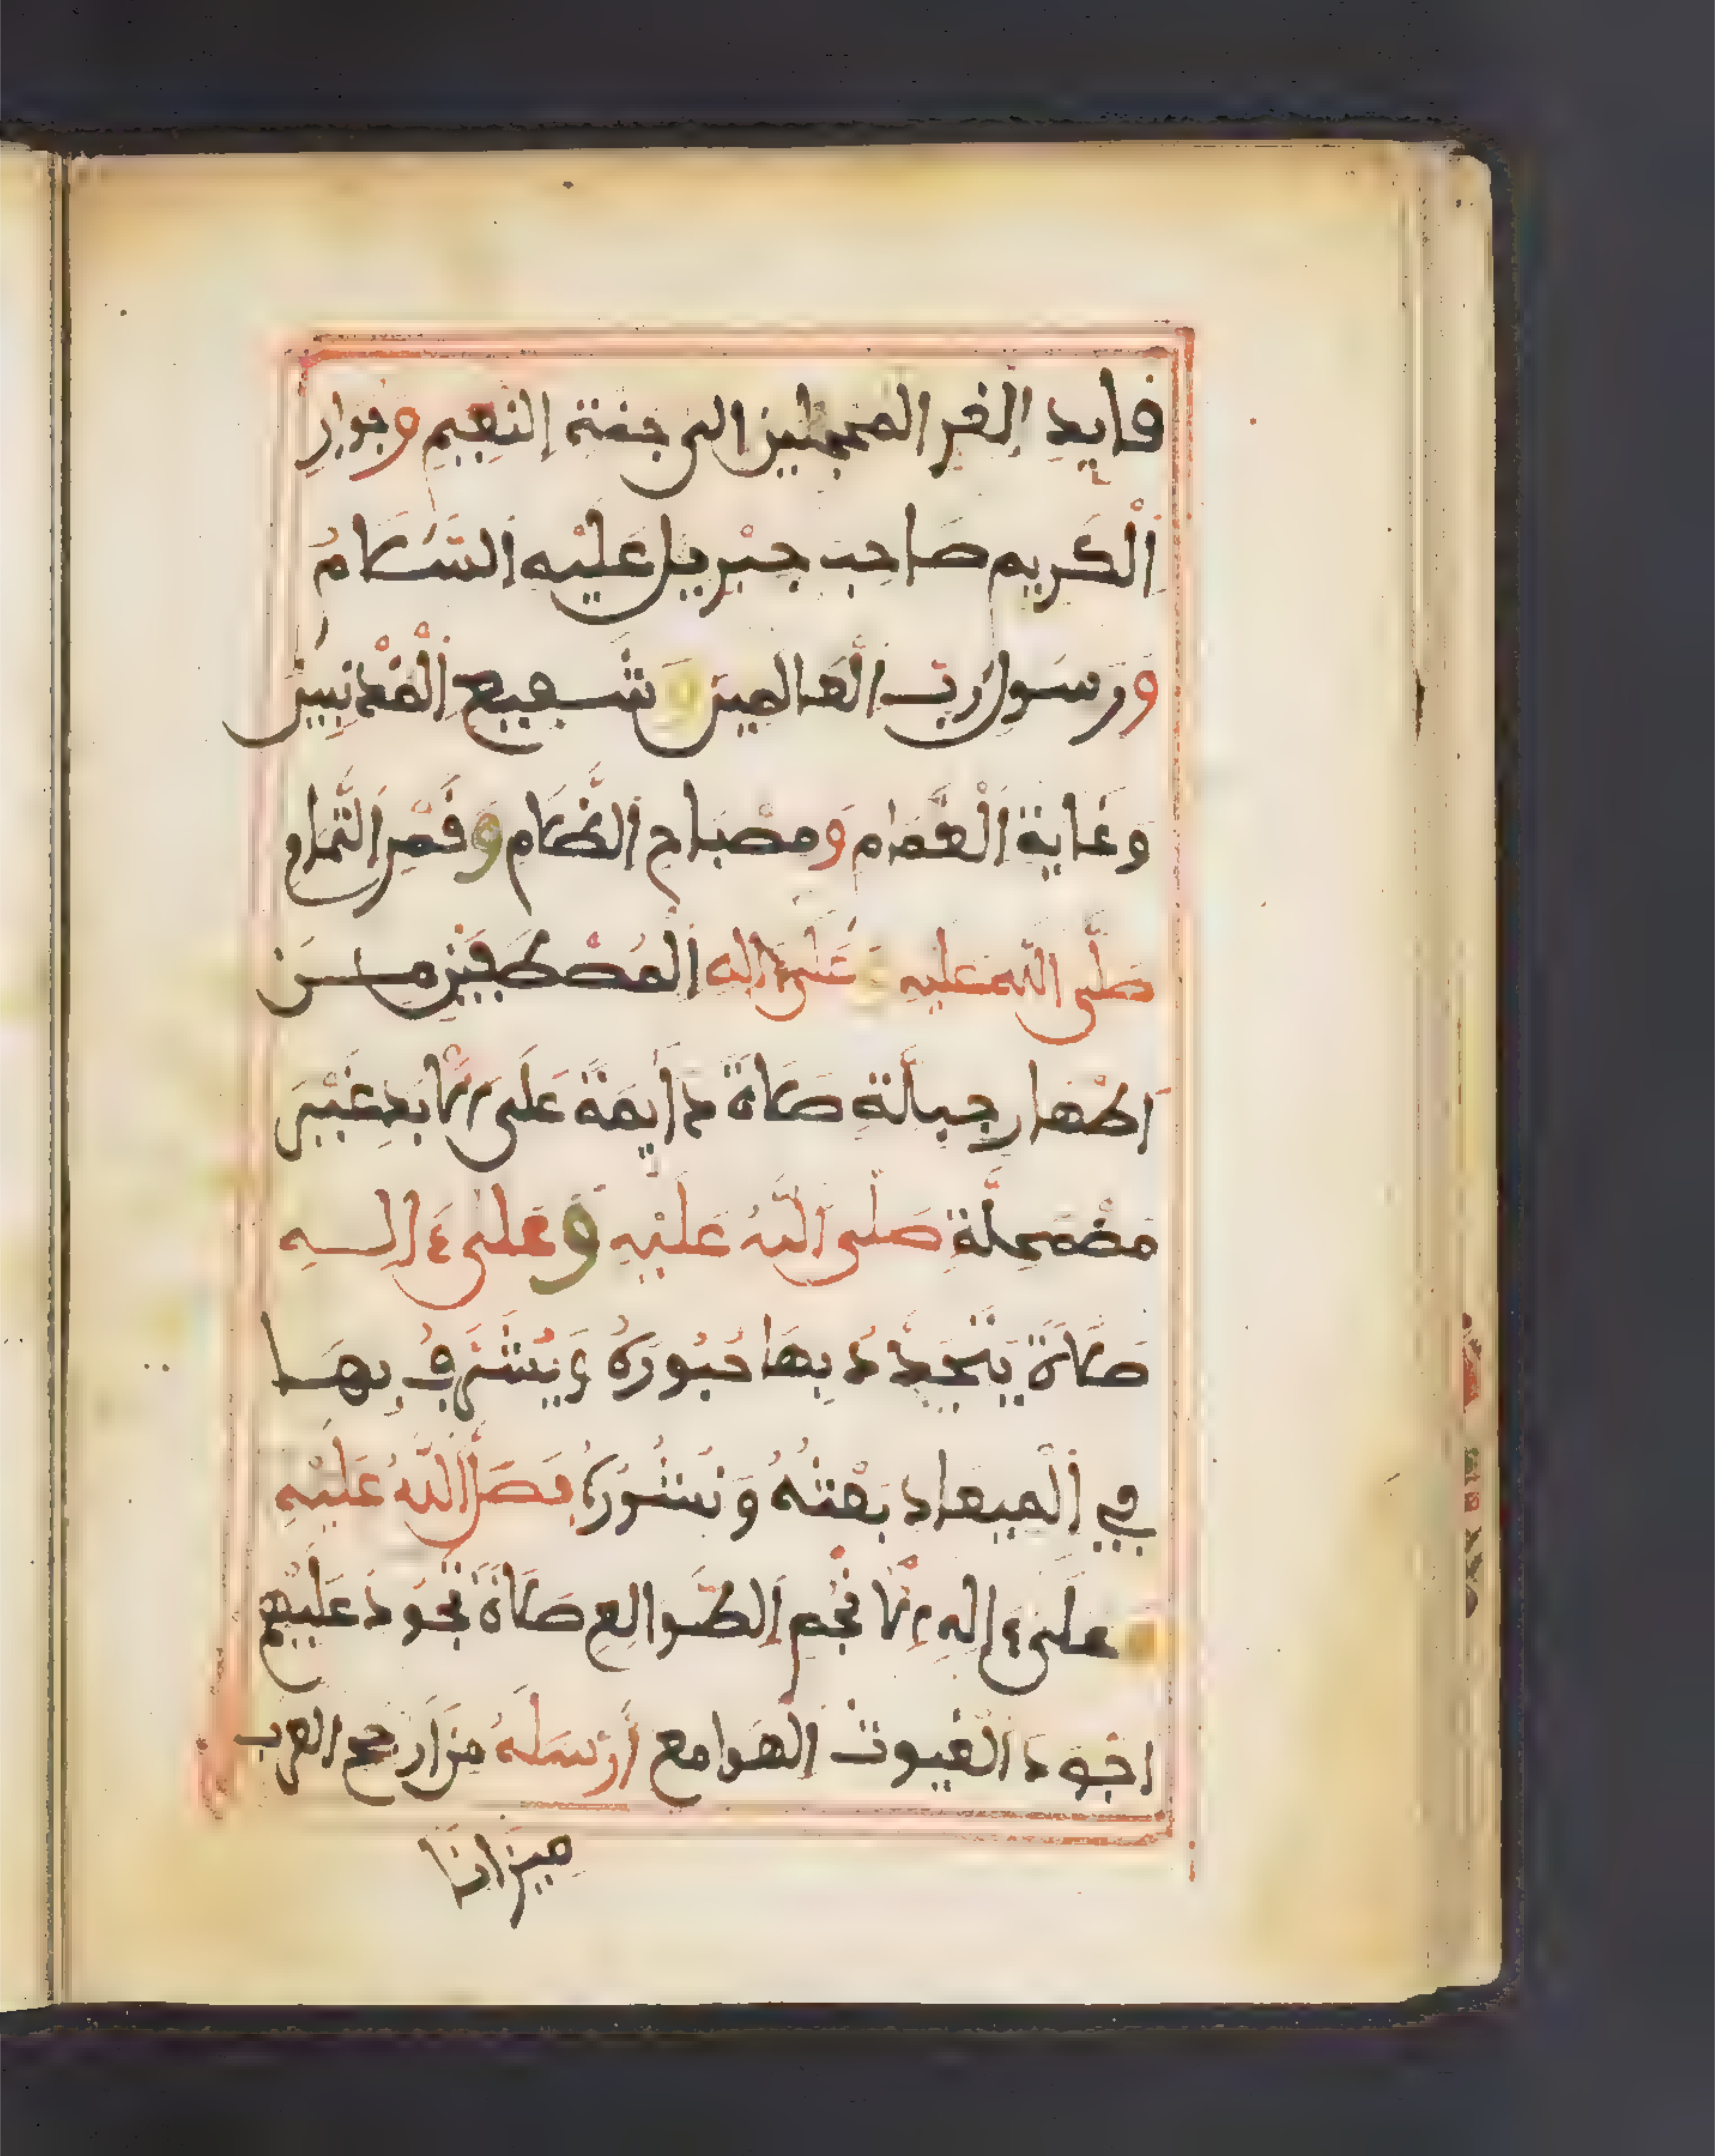 قايد الغر المحجلين الى جنة النعيم وجوار
الْكَريم صَاحب جبْريل عَليْه السَّلَامُ
ورسَول رَبّ الْعَالمين وَشَفيع الْمذْنبين
وَغَاية الْغمَام وَمصْبَاح الظَّلَام وَقَمْر التَّمام
صَلّى اللّه عليه وَعَلىءاله المُصْطَفيْن مـــن
اَطْهار جبلّة صَلَاة دَايمَةً عَلَى الْاَبَد غَيْرَ
مضْمَحلَّة صَلّى اللّهُ عَليْهِ وَعَلىءالـــهِ
صَلَاةً يَتَجَدَّدُ بهَا حُبُورُهُ وَيُشَرَّفُ بِهَــا
فِي الْميعاد بَعْثُهُ وَنُشُورُهُ فَصَلّ اللّهُ عَليْهِ
وعلىءالِهِ الْانْجُم الطَّوالعِ صَلَاةً تَجُودُ عَليْهمْ
اجْوَد الْغيوث الْهَوامع أرْسَلَهُ مِنَ ارْجح العرب
ميزانا